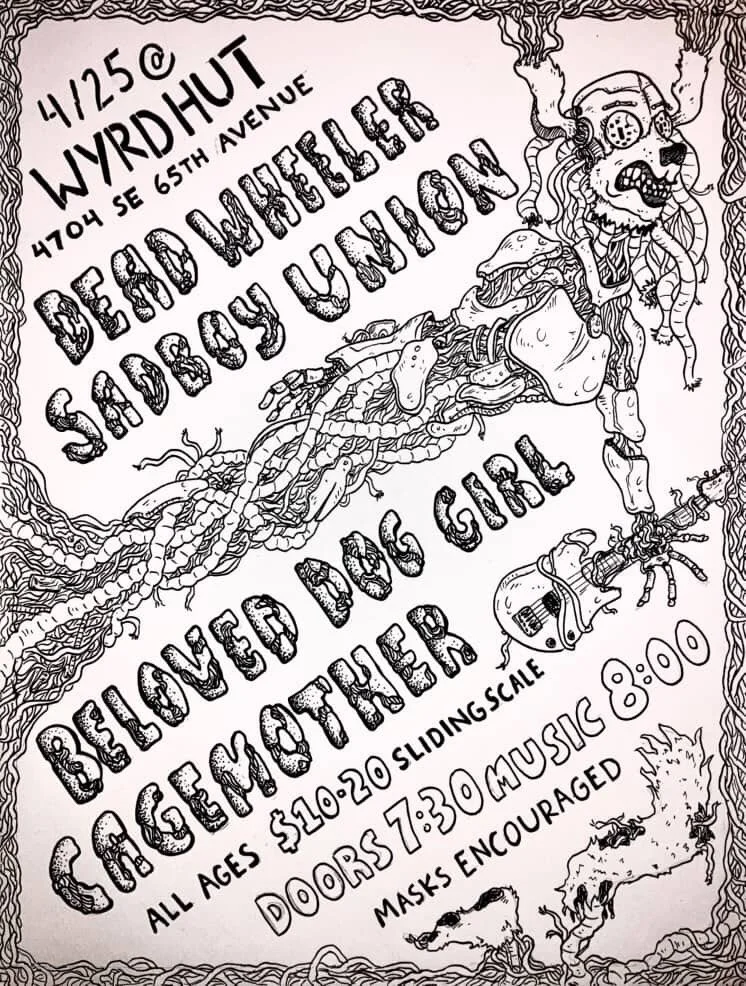 4/25 @
WYRDHUT
4704 SE 65TH AVENUE
DEAD WHEELER
SADBOY UNION
BELOVED DOG GIRL
CAGEMOTHER
ALL AGES $10-20 SLIDING SCALE
DOORS 7:30 MUSIC 8:00
MASKS ENCOURAGED